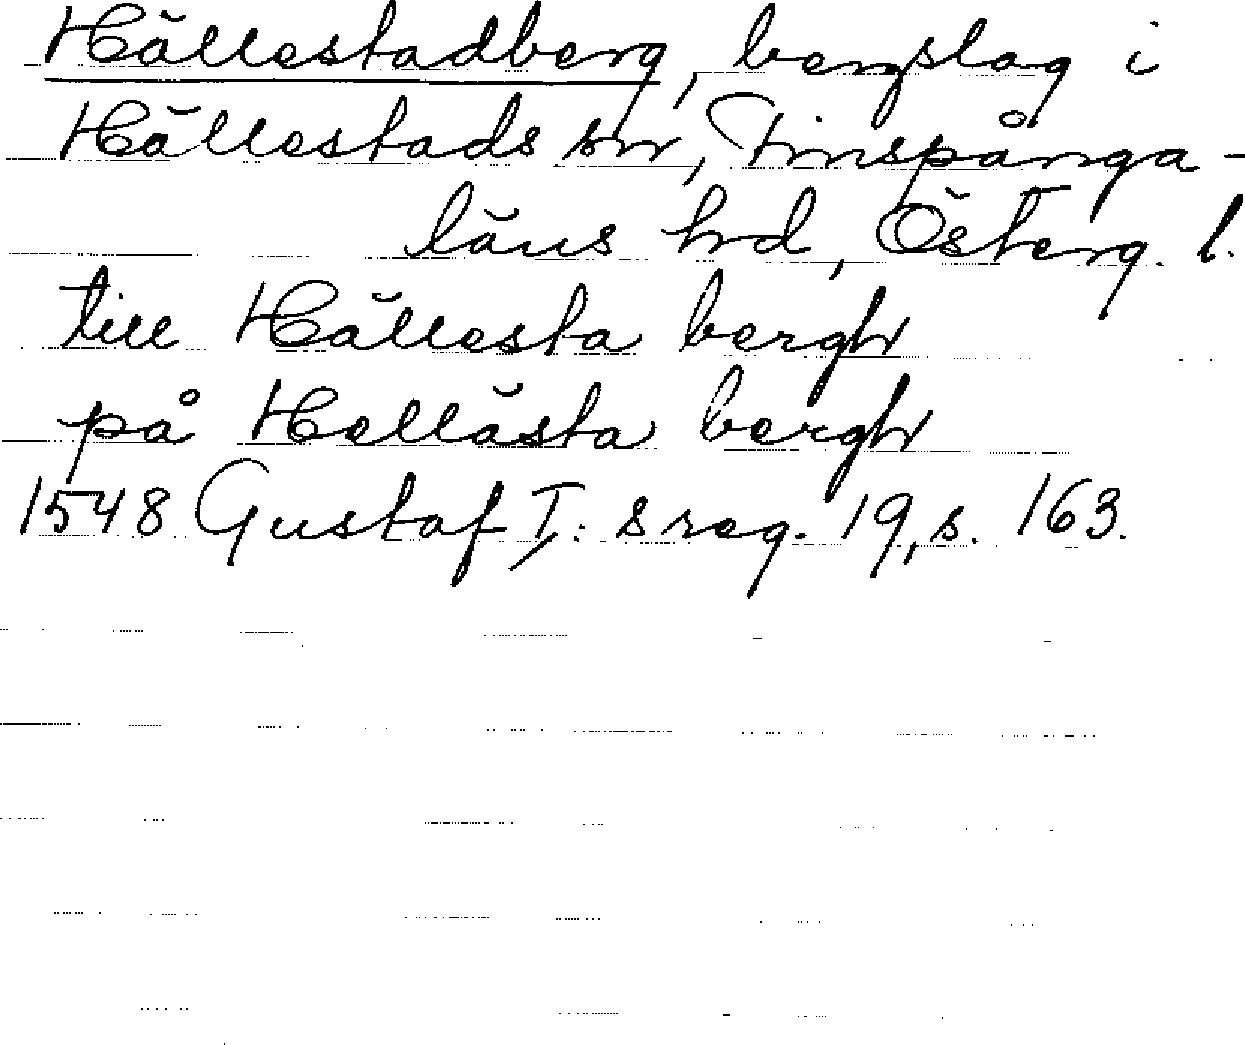 Hällestadberg, bergslag i
Hällestads sn, Finspånga-
läns hd, Österg. l.
till Hällesta bergh
på Hellästa bergh
1548 Gustaf I:s reg. 19, s. 163.